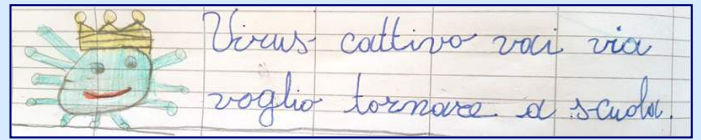 Virus cattivo vai via
voglio tornare a scuola.